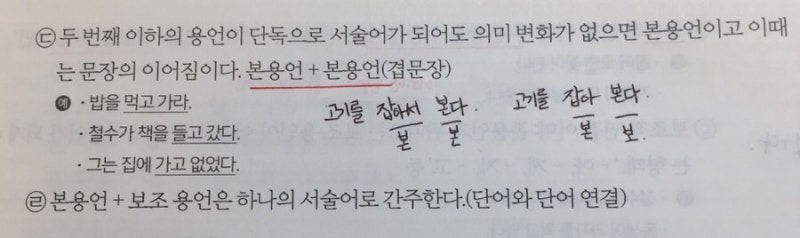 ㉢ 두 번째 이하의 용언이 단독으로 서술어가 되어도 의미 변화가 없으면 본용언이고 이때
는 문장의 이어짐이다. 본용언 + 본용언(겹문장)
예 · 밥을 먹고 가라.
고기를 잡아서 본다.
본 본
고기를 잡아 본다.
본 보.
· 철수가 책을 들고 갔다.
· 그는 집에 가고 없었다.
㉣ 본용언 + 보조 용언은 하나의 서술어로 간주한다.(단어와 단어 연결)